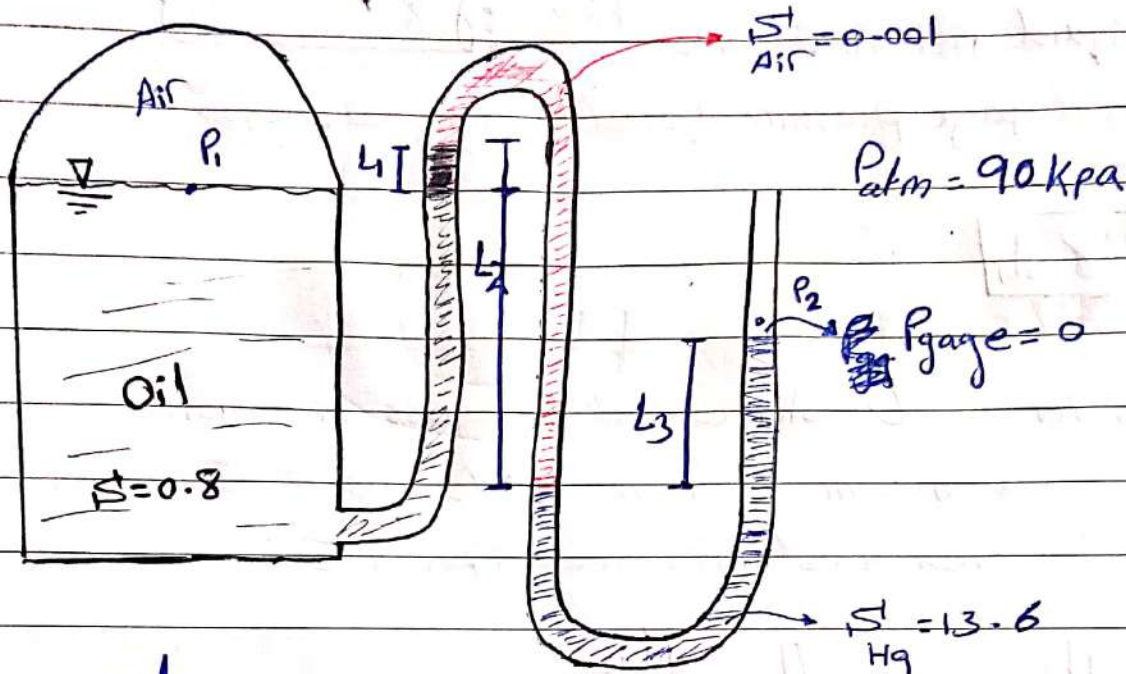 S Air = 0.001
Air
P1
L1
Patm = 90 Kpa
L2
P2
Pgage = 0
Oil
L3
S = 0.8
S Hg = 13.6